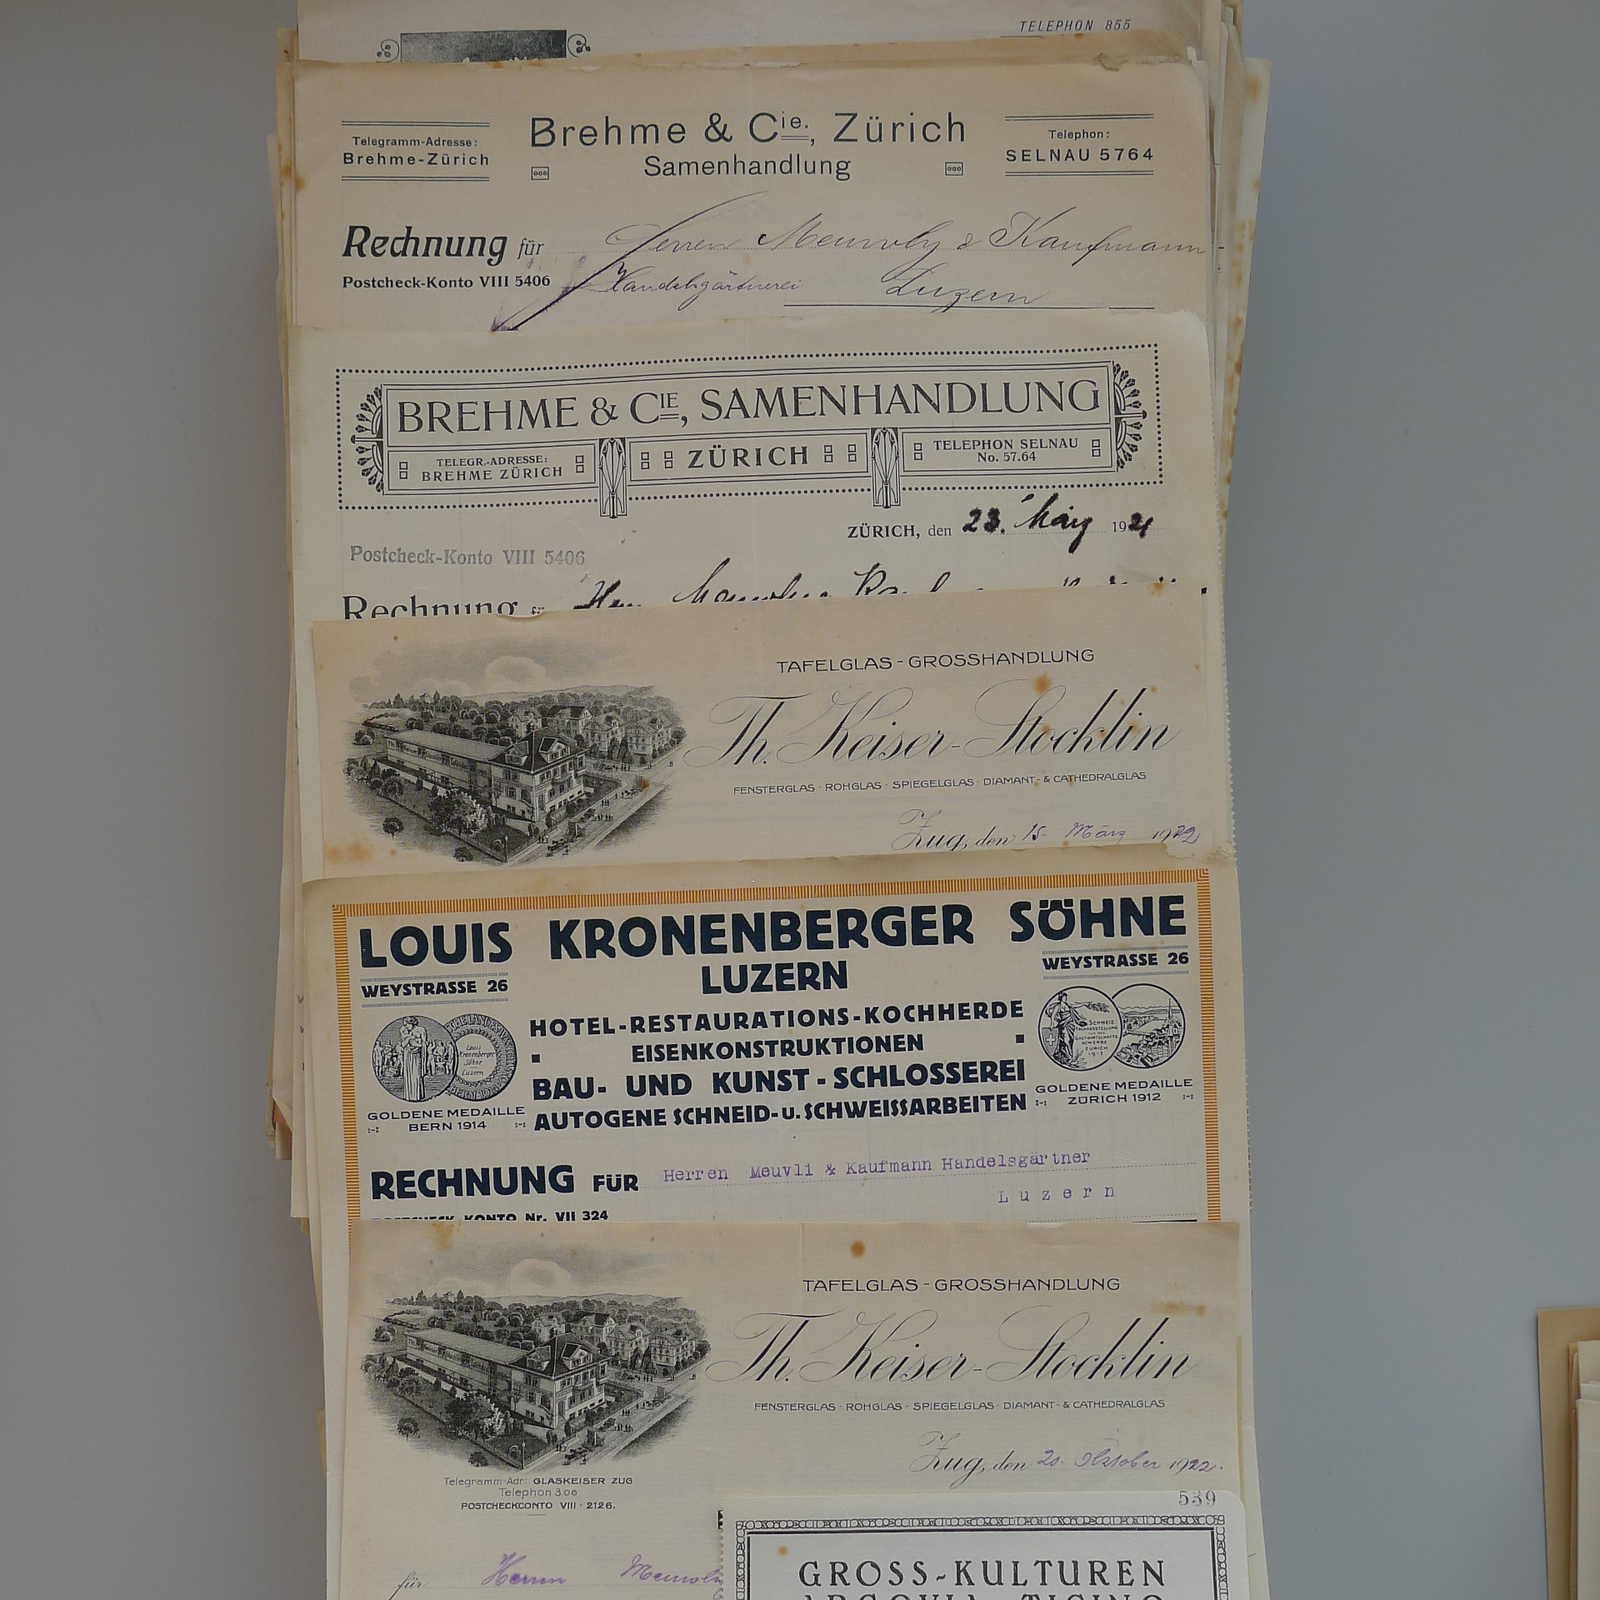 TELEPHON 855
Telegramm-Adresse:
Brehme-Zürich
Brehme & Cie., Zürich
Samenhandlung
Telephon:
SELNAU 5764
Rechnung für Herren Meuwly & Kaufmann
Postcheck-Konto VIII 5406
Handelsgärtnerei Luzern
BREHME & CIE, SAMENHANDLUNG
TELEGR.-ADRESSE:
BREHME ZÜRICH
ZÜRICH
TELEPHON SELNAU
No. 57.64
ZÜRICH, den 23. März 1921
Postcheck-Konto VIII 5406
Rechnung
TAFELGLAS-GROSSHANDLUNG
Th. Keiser-Stocklin
FENSTERGLAS · ROHGLAS · SPIEGELGLAS · DIAMANT- & CATHEDRALGLAS
Zug, den 15. März 1922
LOUIS KRONENBERGER SÖHNE
LUZERN
WEYSTRASSE 26
WEYSTRASSE 26
HOTEL-RESTAURATIONS-KOCHHERDE
EISENKONSTRUKTIONEN
BAU- UND KUNST-SCHLOSSEREI
AUTOGENE SCHNEID- U. SCHWEISSARBEITEN
Louis
Kronenberger
Söhne
Luzern
GOLDENE MEDAILLE
BERN 1914
SCHWEIZ
ZÜRICH
GOLDENE MEDAILLE
ZÜRICH 1912
RECHNUNG FÜR Herren Meuvli & Kaufmann Handelsgärtner
Luzern
POSTCHECK-KONTO Nr. VII 324
TAFELGLAS-GROSSHANDLUNG
Th. Keiser-Stocklin
FENSTERGLAS · ROHGLAS · SPIEGELGLAS · DIAMANT- & CATHEDRALGLAS
Zug, den 20. Oktober 1922.
Telegramm-Adr: GLASKEISER ZUG
Telephon 3.06
POSTCHECKCONTO VIII · 2126.
für Herrn
539
GROSS-KULTUREN
ARGOVIA TICINO